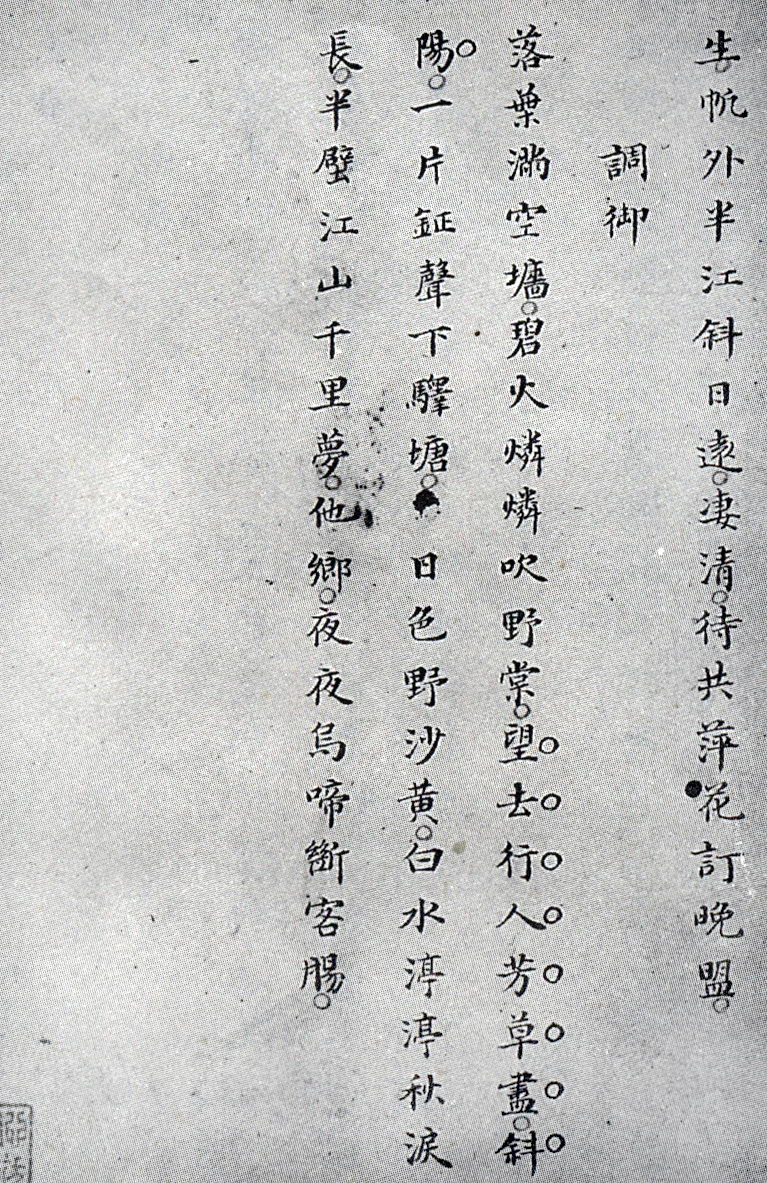 生帆外半江斜日遠。凄清。待共萍花訂晚盟。
調御
落葉滿空墻。碧火燐燐吹野棠。望去行人芳草盡。斜
陽。一片鉦聲下驛塘。日色野沙黄。白水渟渟秋淚
長。半壁江山千里夢。他鄉。夜夜烏啼斷客腸。